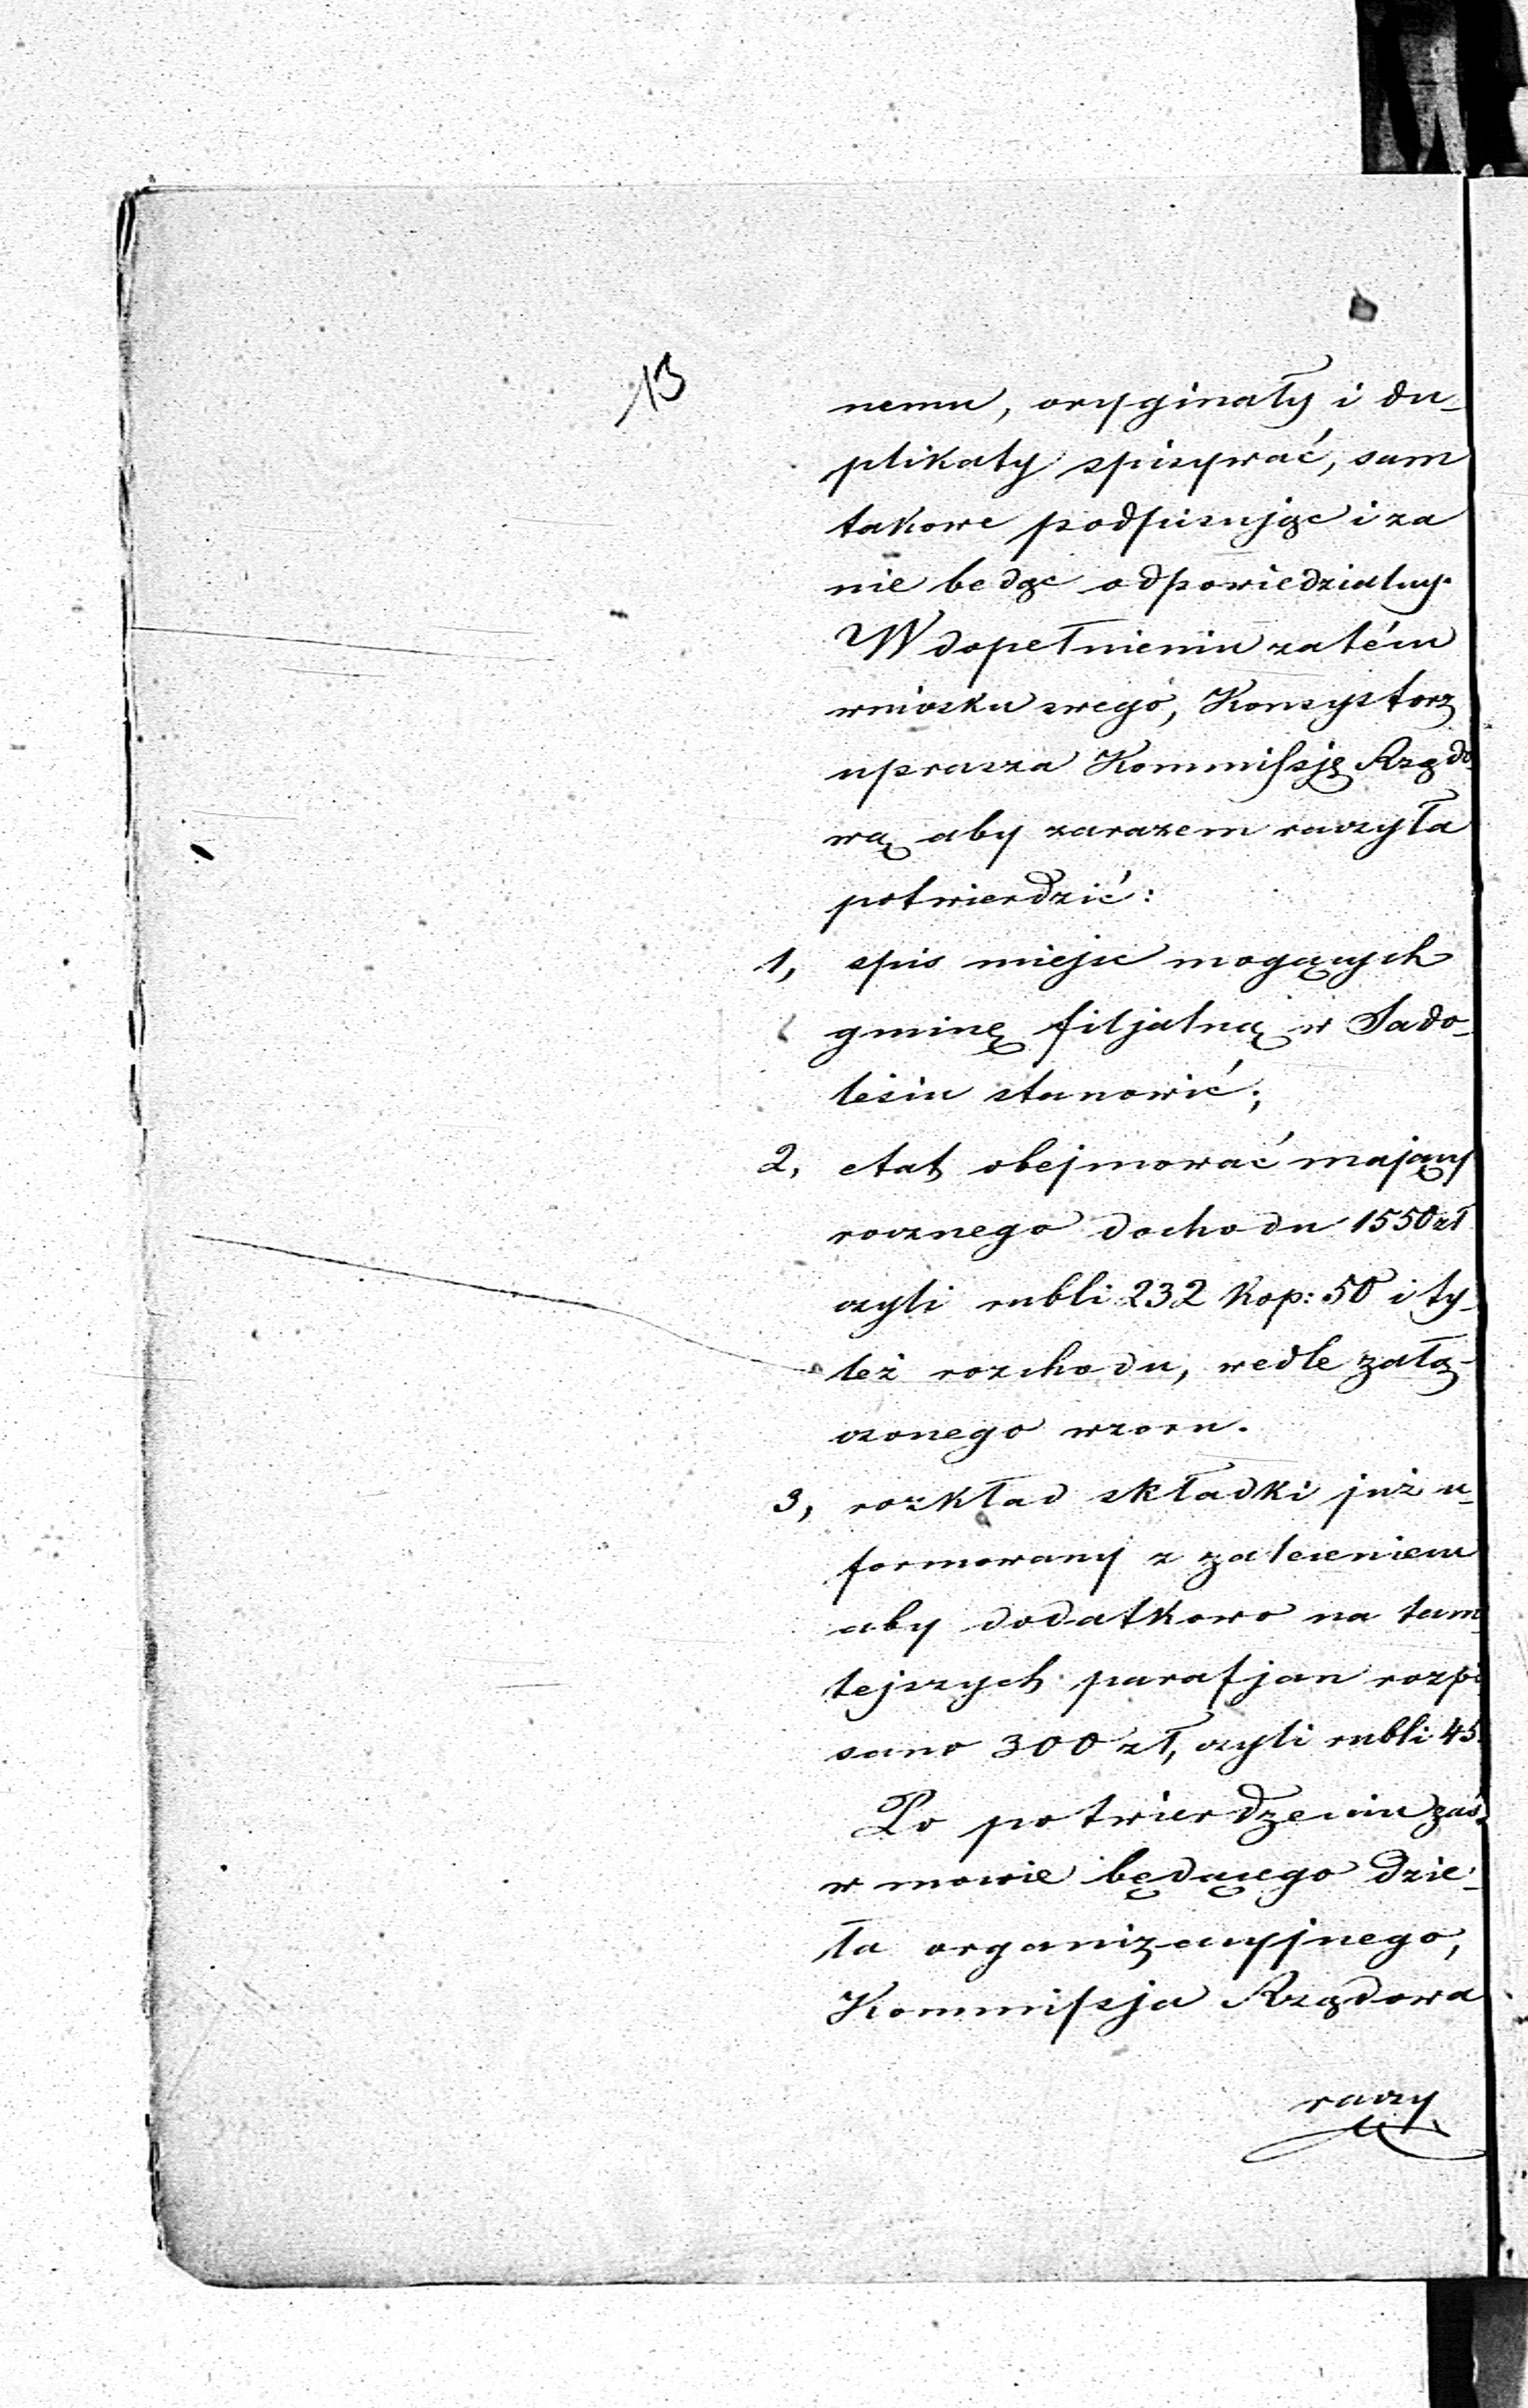 13
nemu, oryginały i du-
plikaty spisywać, sam
takowe podpisując i za
nie bedąc odpowiedzialny.
W dopełnieniu zatém
wniosku swego, Konsystorz
uprasza Kommissję Rządo
wą aby zarazem raczyła
potwierdzić:
1, spis miejsc mogących
gminę filjalną w Sado-
lesiu stanowić;
2, etat obejmować mający
rocznego dochodu 1550 zł
czyli rubli 232 kop: 50 i ty-
leż rozchodu, wedle załą-
czonego wzoru.
3, rozkład składki już u-
formowany z zaleceniem
aby dodatkowo na tam
tejszych parafjan rozpi
sano 300 zł, czyli rubli 45.
Po potwierdzeniu zaś
w mowie będącego dzie-
ła organizacyjnego,
Kommissja Rządowa
raczy